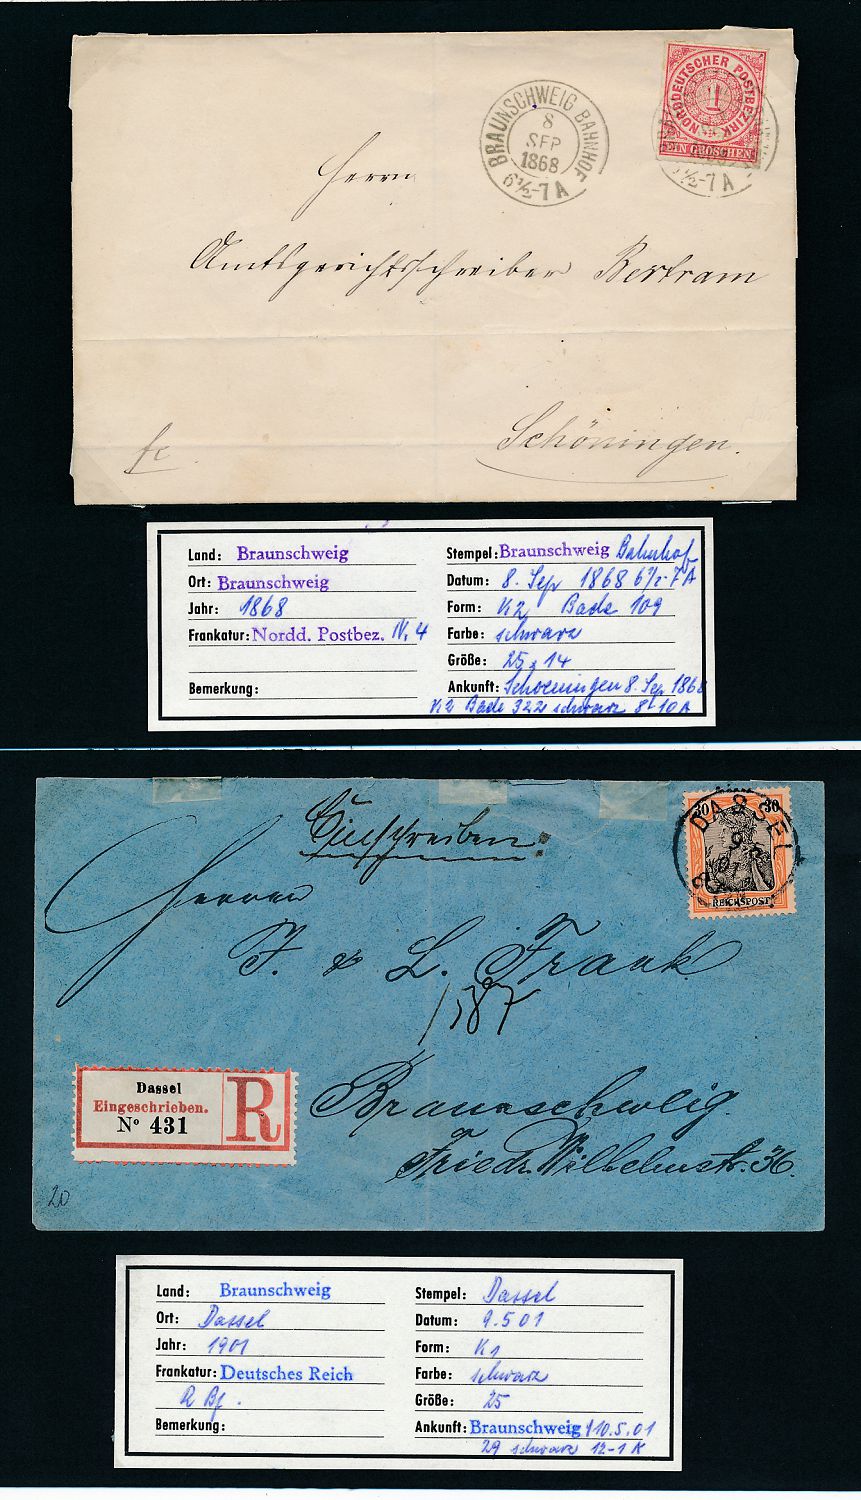 NORDDEUTSCHER POSTBEZIRK
1
EIN GROSCHEN
BRAUNSCHWEIG BAHNHOF
8
SEP
1868
6½-7A
½-7A
Herrn
Amtsgerichtsschreiber Bertram
Schöningen.
fc
Land: Braunschweig
Ort: Braunschweig
Jahr: 1868
Frankatur: Nordd. Postbez. N. 4
Bemerkung:
Stempel: Braunschweig Bahnhof
Datum: 8. Sep 1868 6½-7A
Form: K2 Bade 109
Farbe: schwarz
Größe: 25, 14
Ankunft: Schoeningen 8. Sep 1868
K2 Bade 322 schwarz 8-10A
Einschreiben!
30 30
REICHSPOST
DASSEL
9
Herren
F. & L. Frank
1587
Braunschweig.
Friedr. Wilhelmstr. 36.
Dassel
Eingeschrieben.
Nº 431
R
20
Land: Braunschweig
Ort: Dassel
Jahr: 1901
Frankatur: Deutsches Reich
R Bf.
Bemerkung:
Stempel: Dassel
Datum: 9.5 01
Form: K1
Farbe: schwarz
Größe: 25
Ankunft: Braunschweig 1 10.5.01
29 schwarz 12-1 K